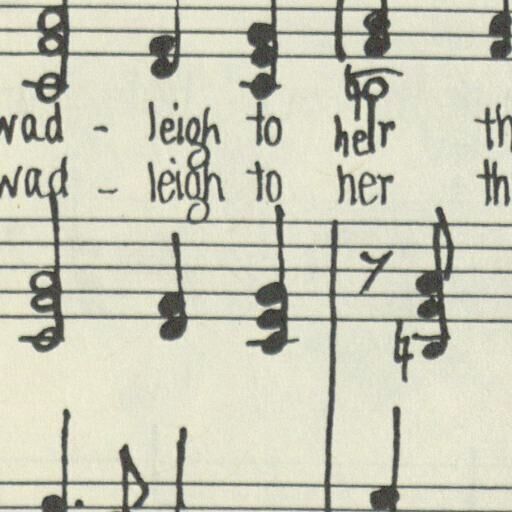 wad - leigh to her th
wad - leigh to her th